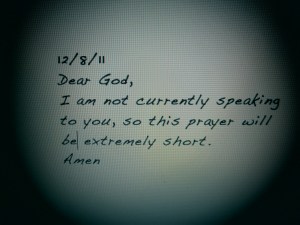 12/8/11
Dear God,
I am not currently speaking
to you, so this prayer will
be extremely short.
Amen